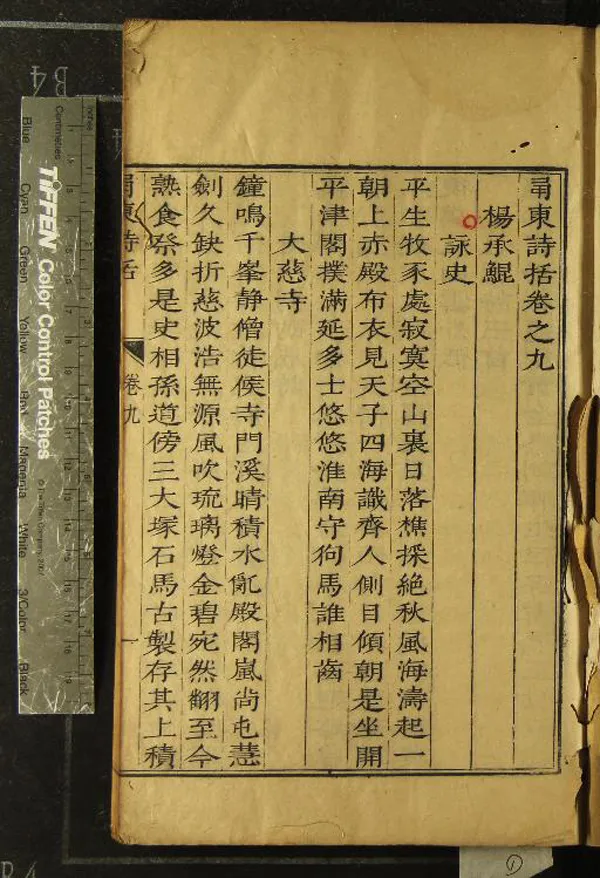 甬東詩括卷之九
楊承鯤
詠史
平生牧豕處寂寞空山裏日落樵採絕秋風海濤起一
朝上赤殿布衣見天子四海識齊人側目傾朝是坐開
平津閣撲滿延多士悠悠淮南守狗馬誰相齒
大慈寺
鐘鳴千峯静僧徒候寺門溪晴積水亂殿閣嵐尚屯慧
劍久缺折慈波浩無源風吹琉璃燈金碧宛然翻至今
熟食祭多是史相孫道傍三大塚石馬古製存其上積
甬東詩括
卷九
一
TIFFEN Color Control Patches
© The Tiffen Company, 2007
Centimetres
Inches
Blue
Cyan
Green
Yellow
Red
Magenta
White
3/Color
Black
B4
①